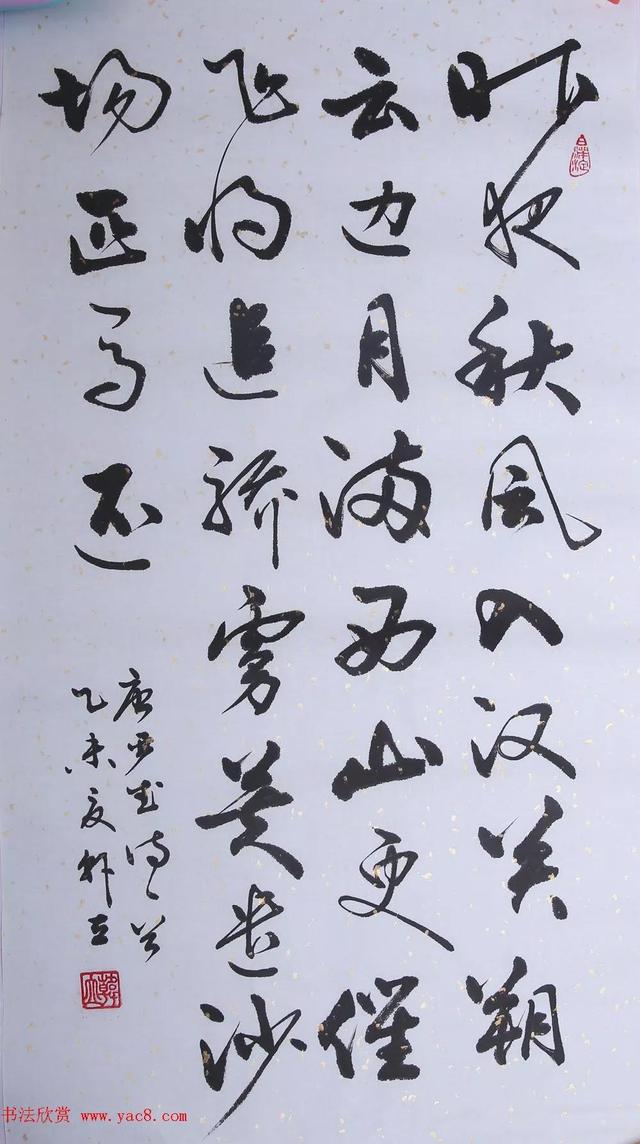 昨夜秋风入汉关朔
云边月满西山更催
飞将追骄虏莫遣沙
场匹马还
唐严武诗一首
乙未夏韩立
书法欣赏 www.yac8.com